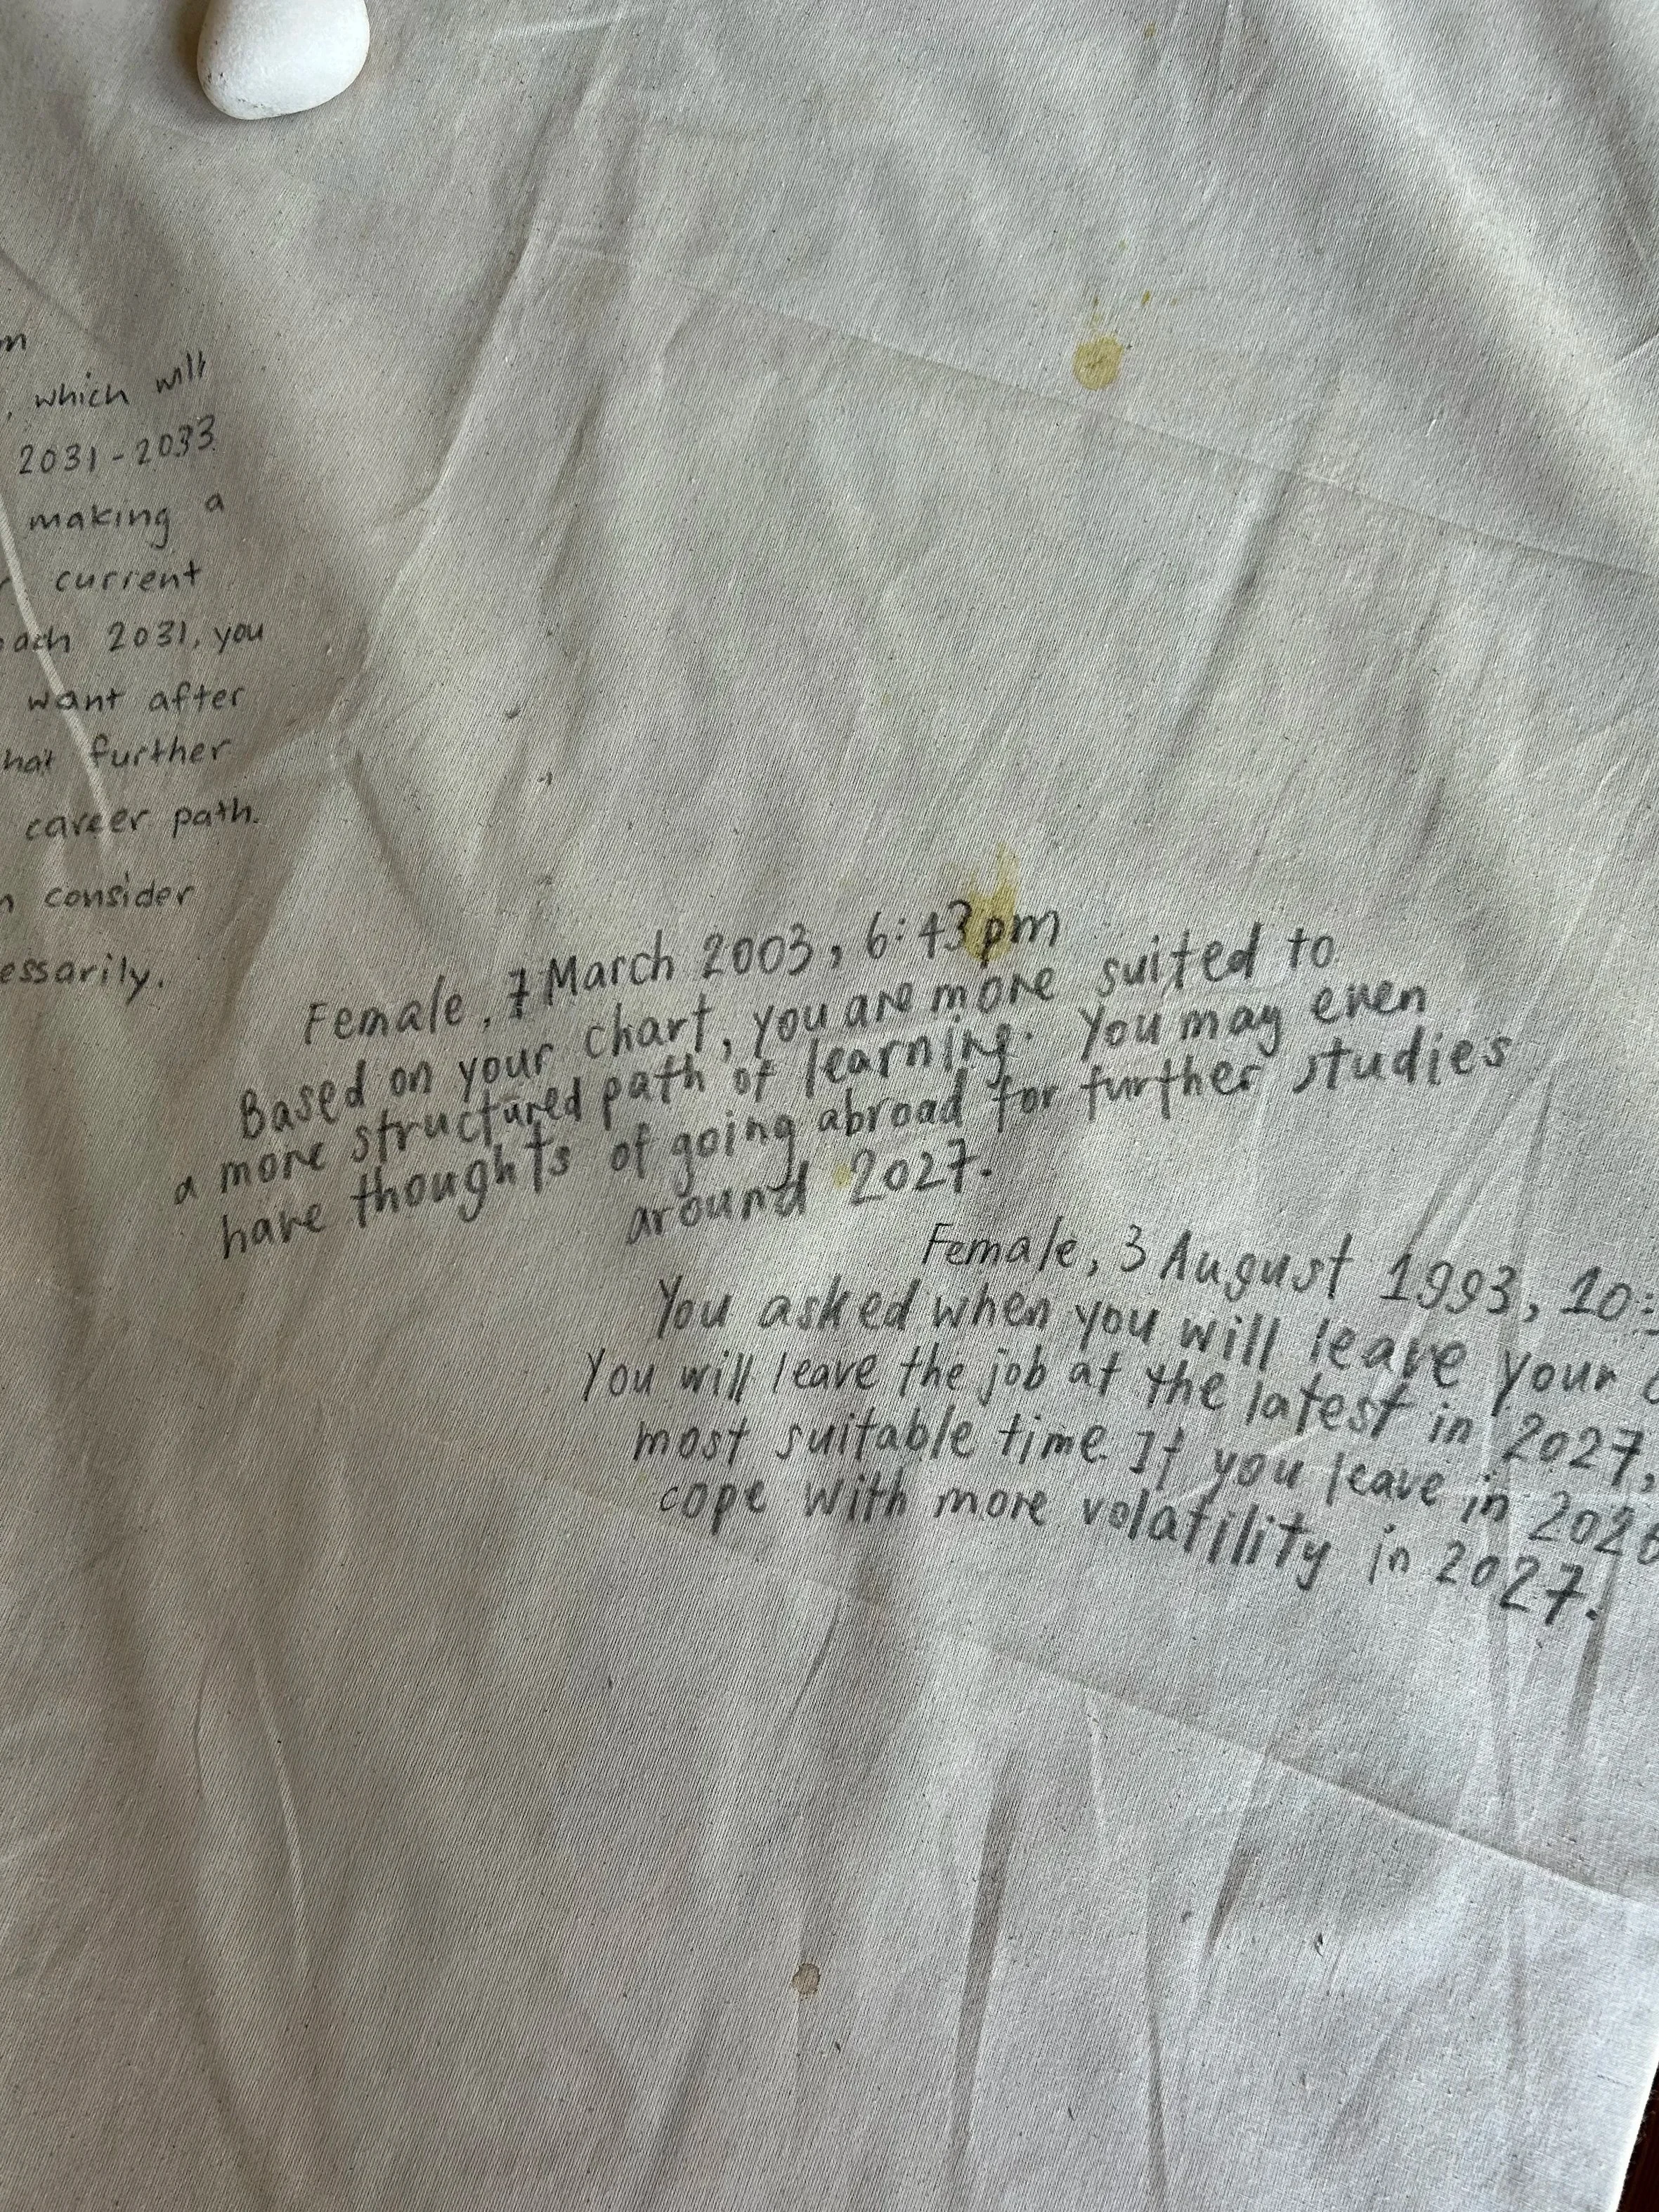 which will
2031-2033
making a
current
2031, you
want after
further
career path.
consider
Female, 7 March 2003, 6:43pm
Based on your chart, you are more suited to
a more structured path of learning. You may even
have thoughts of going abroad for further studies
around 2027.
Female, 3 August 1993, 10:
You asked when you will leave your
You will leave the job at the latest in 2027,
most suitable time. If you leave in 2026
cope with more volatility in 2027.